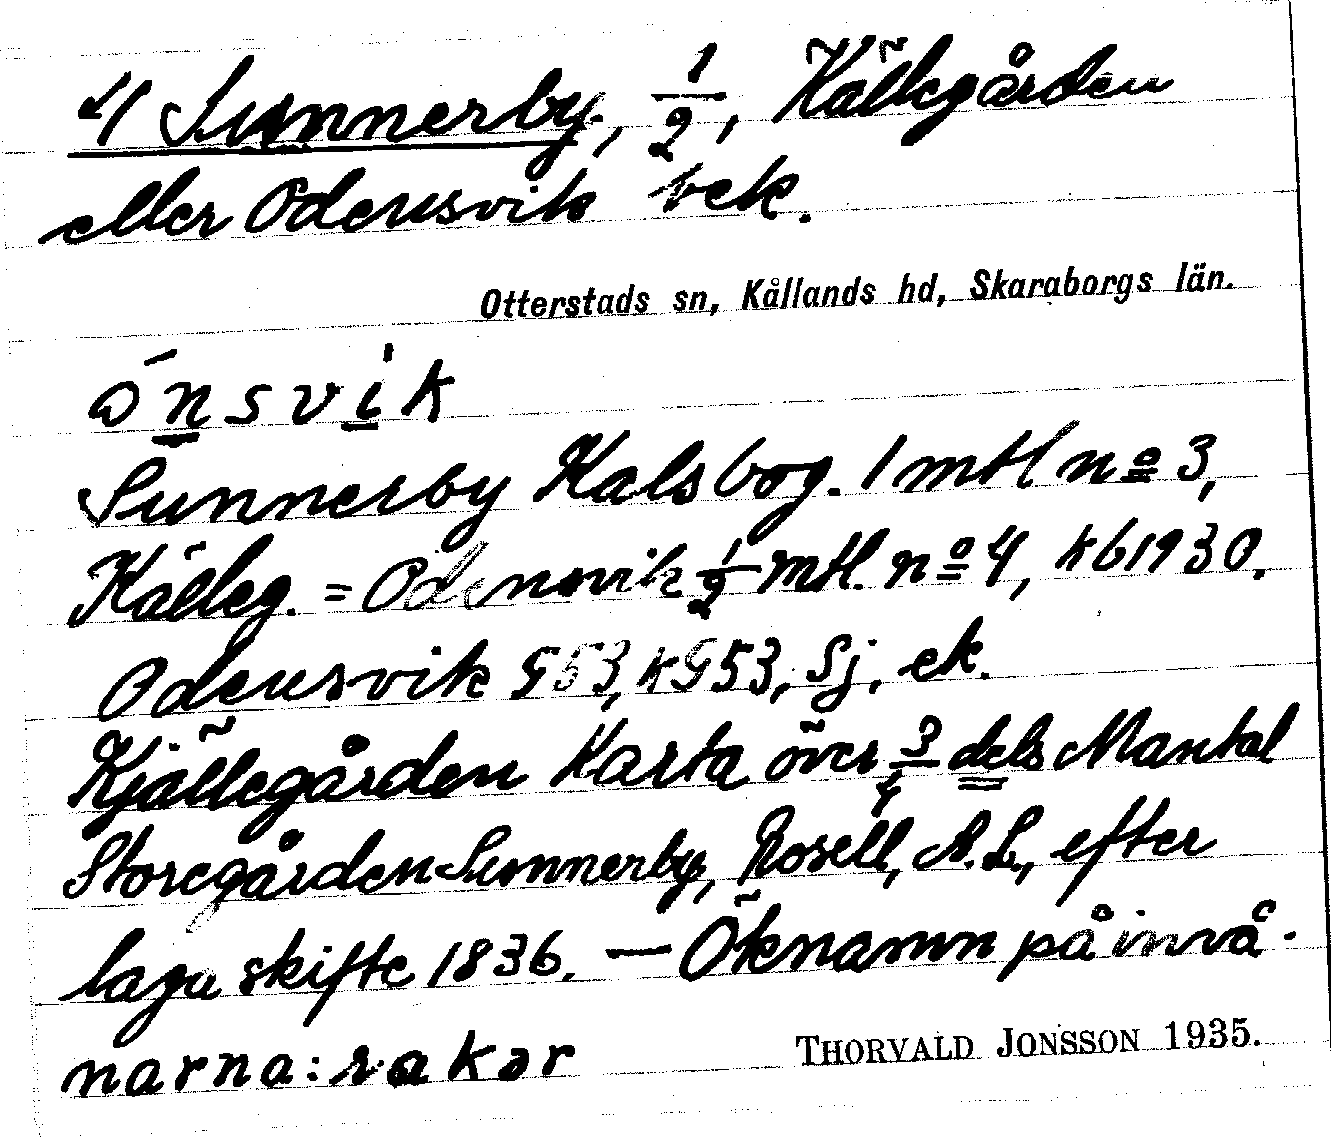 4 Sunnerby, 1/2, Källegården
eller Odensvik bek.
Otterstads sn, Kållands hd, Skaraborgs län.
ónsvik
Sunnerby Kalsbog. 1 mtl nº 3,
Källeg. = Odensvik 1/2 mtl. nº 4, kb1930.
Odensvik G53, kG53, Sj, ek.
Kjällegården Karta över 3/4 dels Mantal
Storegården Sunnerby, Rosell, A.L., efter
laga skifte 1836. — Öknamn på invå-
narna: rakər
THORVALD JONSSON 1935.